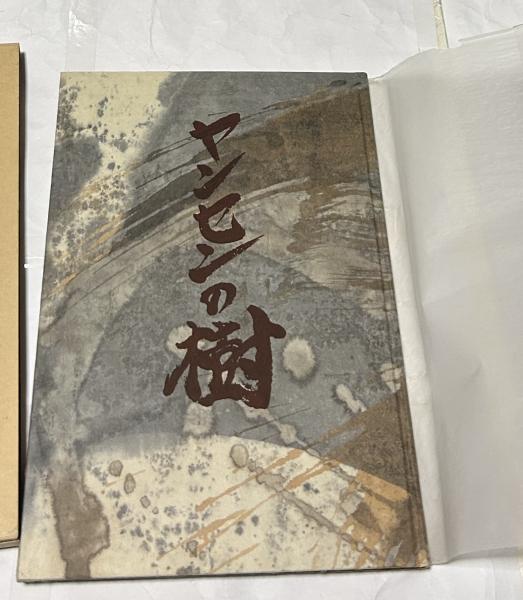 ヤンセンの樹